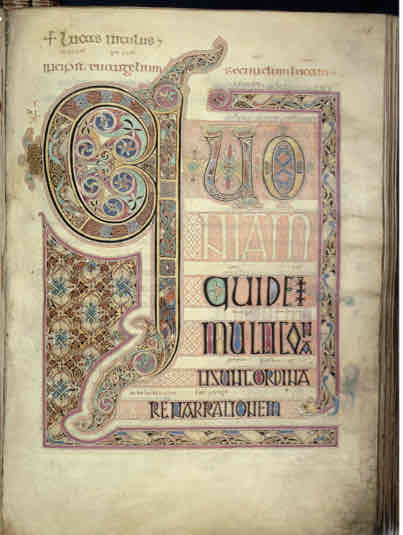 + Lucas uitulus
incipit euangelium secundum lucam
QUO
NIAM
QUIDE
MULTI CO
NA
TI SUNT ORDINA
RE NARRATIONEM